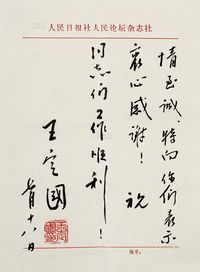 人民日报社人民论坛杂志社
情至诚，特向你们表示
衷心感谢！ 祝
同志们工作顺利！
王定國
十八日